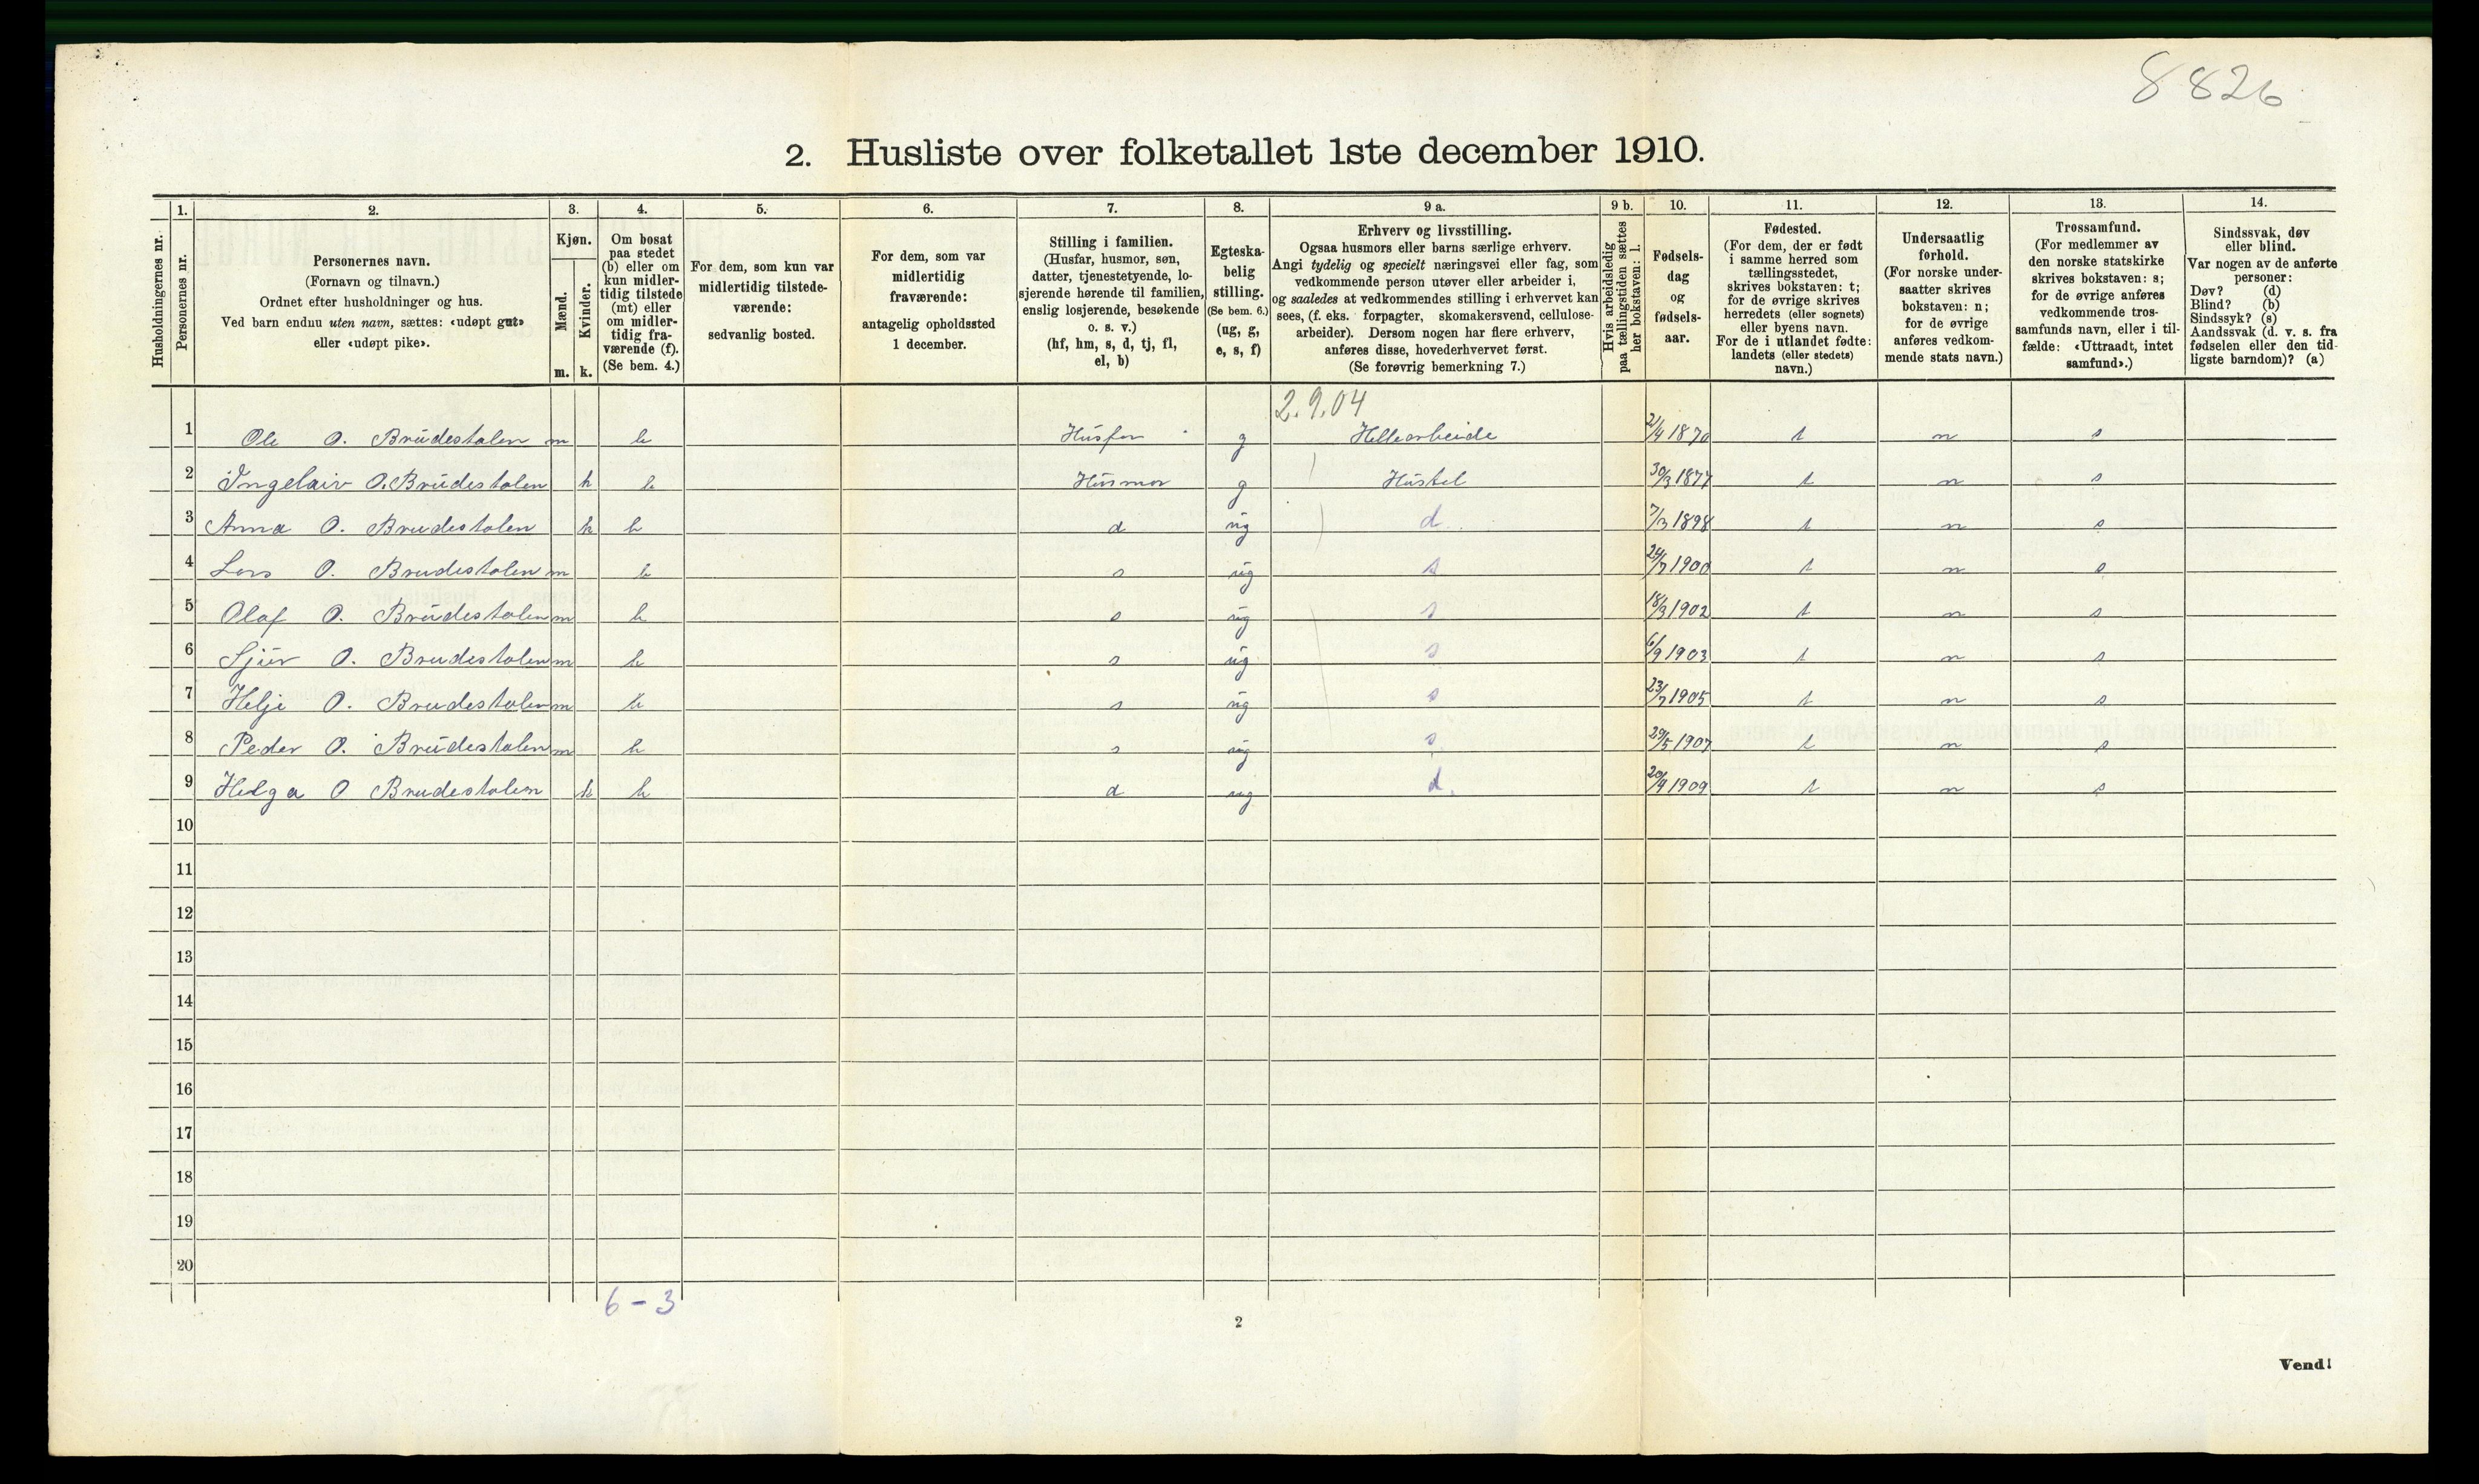 8826
2. Husliste over folketallet 1ste december 1910.
Husholdningernes nr.
1.
Personernes nr.
2.
Personernes navn.
(Fornavn og tilnavn.)
Ordnet efter husholdninger og hus.
Ved barn endnu uten navn, sættes: «udøpt gut»
eller «udøpt pike».
3.
Kjøn.
Mænd.
Kvinder.
m. k.
4.
Om bosat
paa stedet
(b) eller om
kun midler-
tidig tilstede
(mt) eller
om midler-
tidig fra-
værende (f).
(Se bem. 4.)
5.
For dem, som kun var
midlertidig tilstede-
værende:
sedvanlig bosted.
6.
For dem, som var
midlertidig
fraværende:
antagelig opholdssted
1 december.
7.
Stilling i familien.
(Husfar, husmor, søn,
datter, tjenestetyende, lo-
sjerende hørende til familien,
enslig losjerende, besøkende
o. s. v.)
(hf, hm, s, d, tj, fl,
el, b)
8.
Egteska-
belig
stilling.
(Se bem. 6.)
(ug, g,
e, s, f)
9 a.
Erhverv og livsstilling.
Ogsaa husmors eller barns særlige erhverv.
Angi tydelig og specielt næringsvei eller fag, som
vedkommende person utøver eller arbeider i,
og saaledes at vedkommendes stilling i erhvervet kan
sees, (f. eks. forpagter, skomakersvend, cellulose-
arbeider). Dersom nogen har flere erhverv,
anføres disse, hovederhvervet først.
(Se forøvrig bemerkning 7.)
9 b.
Hvis arbeidsledig
paa tællingstiden sættes
her bokstaven: l.
10.
Fødsels-
dag
og
fødsels-
aar.
11.
Fødested.
(For dem, der er født
i samme herred som
tællingsstedet,
skrives bokstaven: t;
for de øvrige skrives
herredets (eller sognets)
eller byens navn.
For de i utlandet fødte:
landets (eller stedets)
navn.)
12.
Undersaatlig
forhold.
(For norske under-
saatter skrives
bokstaven: n;
for de øvrige
anføres vedkom-
mende stats navn.)
13.
Trossamfund.
(For medlemmer av
den norske statskirke
skrives bokstaven: s;
for de øvrige anføres
vedkommende tros-
samfunds navn, eller i til-
fælde: «Uttraadt, intet
samfund».)
14.
Sindssvak, døv
eller blind.
Var nogen av de anførte
personer:
Døv? (d)
Blind? (b)
Sindssyk? (s)
Aandssvak (d. v. s. fra
fødselen eller den tid-
ligste barndom)? (a)
2.9.04
1 Ole O. Brudestolen m b Husfar g 2/4 1870 t n s
2 O. Brudestolen k b Husmor g Hustel 30/3 1877 t n s
3 Anna O. Brudestolen k b d ug d 7/3 1898 t n s
4 Lars O. Brudestolen m b s ug s 24/7 1900 t n s
5 Olaf O. Brudestolen m b s ug s 18/3 1902 t n s
6 Sjur O. Brudestolen m b s ug s 6/9 1903 t n s
7 Helje O. Brudestolen m b s ug s 23/7 1905 t n s
8 Peder O. Brudestolen m b s ug s 29/5 1907 t n s
9 Helga O Brudestolen k b d ug d. 20/9 1909 t n s
10
11
12
13
14
15
16
17
18
19
20
6-3
2
Vend!